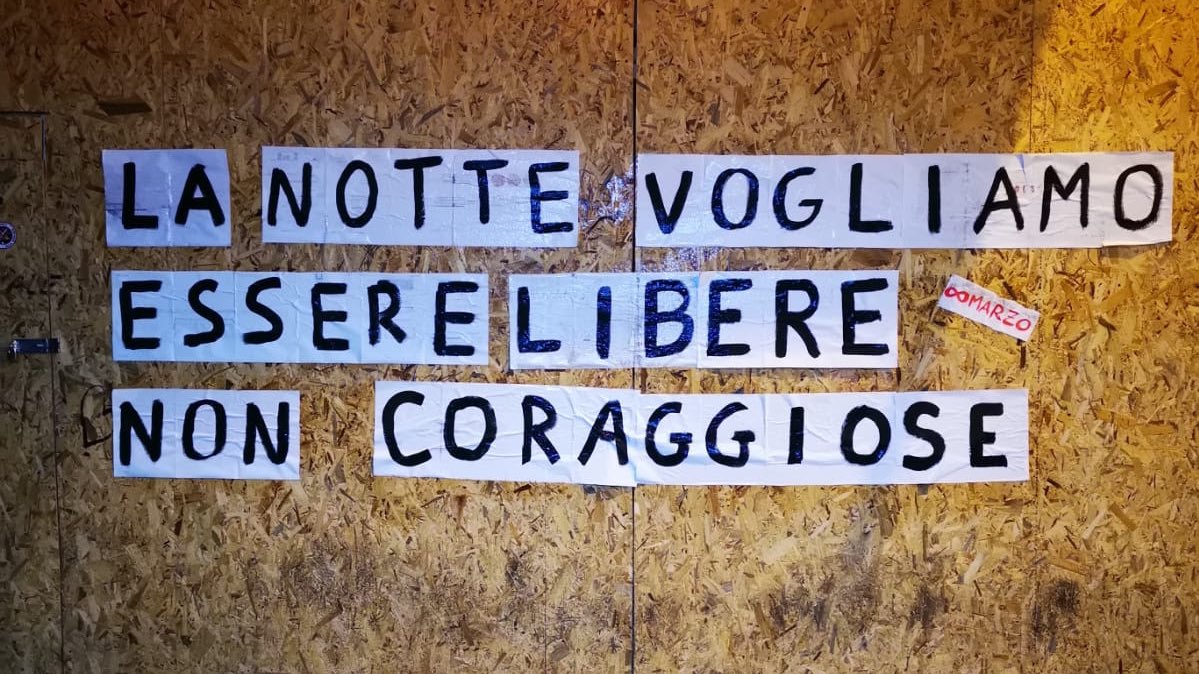 LA NOTTE VOGLIAMO
ESSERE LIBERE
∞MARZO
NON CORAGGIOSE